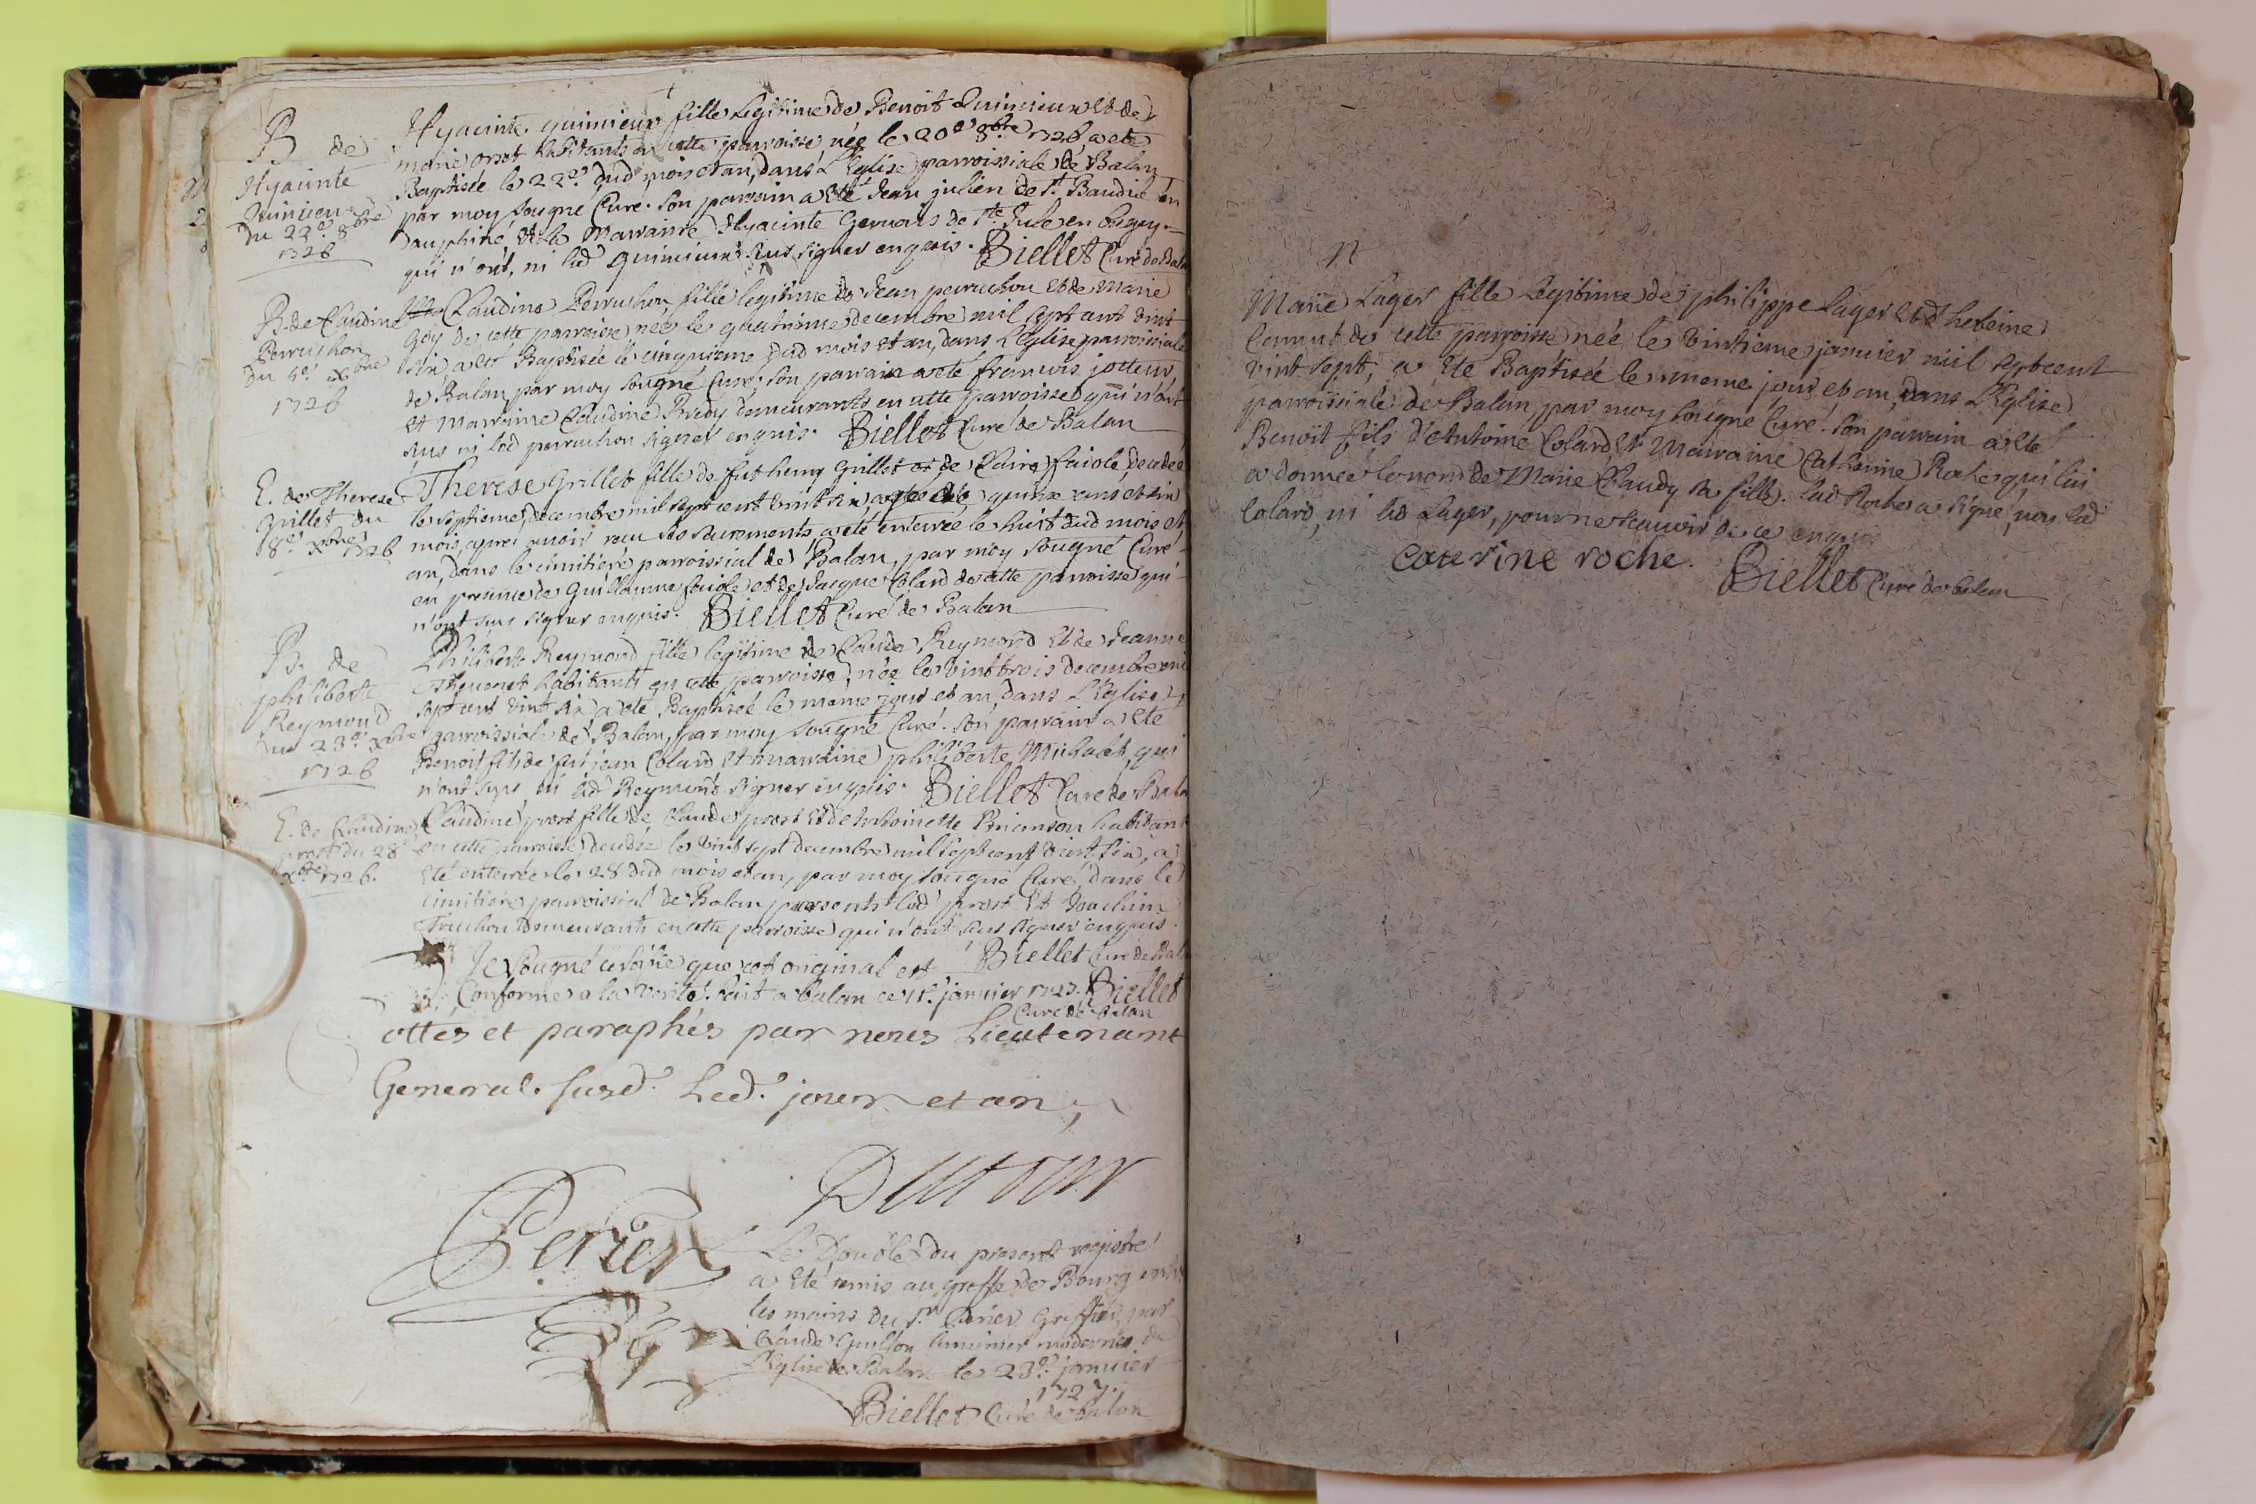 B de
Hyacinte
Quinieux
du 22e 8bre
1726
Hyacinte quinieux fille Legitime de Benoit Quinieux et de
marie orsot habitants en cette parroisse, née le 20e 8bre 1726, a ete
Baptisée le 22e dud mois et an, dans L'Eglise parroissiale de Balan
par moy sougné Curé. son parrain a été Jean julien de st Baudile en
dauphiné, et la Marraine Hyacinte Gervais de ste Jule en bugey
qui n'ont, ni led quinieux sus signer enquis. Biellet Curé de Bala
B. de Claudine
Perruchon
du 5e xbre
1726
Claudine Perruchon fille legitime de Jean perruchon et de Marie
Goy de cette parroisse, née le quatrieme decembre mil sept cent vint
six, a ete Baptisée le cinquieme dud mois et an, dans L'Eglise parroissiale
de Balan, par moy sougné Curé; son parrain a ete francois jotteur
et Marraine Claudine Brédy demeurants en cette parroisse qui n'ont
sus ni led perruchon signer enquis. Biellet Curé de Balan
E. de Therese
grillet du
8e xbre 1726
Therese grillet fille de fut hemy grillet et de Claire faiole, decedee
le septieme decembre mil sept cent vint six, agée de quinze ans et six
mois, apres avoir recu ses sacrements a eté enterrée le huit dud mois et
an, dans le cimitiere parroissial de Balan, par moy sougné Curé
en presence de Guillaume faiole et de Jacque Colard de cette parroisse qui
n'ont sus signer enquis. Biellet Curé de Balan
B. de
philiberte
Reymond
du 23e xbre
1726
Philiberte Reymond fille legitime de Claude Reymond et de Jeanne
Thevenet habitants en cette parroisse, née le vint trois decembre mil
sept cent vint six a eté Baptisée le meme jour et an, dans L'Eglise
parroissiale de Balan, par moy sougné Curé. son parrain a ete
Benoit fils de fut jean Colard et marraine philiberte Michalet, qui
n'ont sus ni led Reymond signer enquis. Biellet Curé de Bala
E. de Claudine
prost du 28
xbre 1726.
Claudine prost fille de Claude prost et de Antoinette Brianson habitant
en cette parroisse, decedée le vint sept decembre mil sept cent vint six, a
eté enterrée le 28 dud mois et an, par moy sougné Curé, dans le
cimitiere parroissial de Balan presents led prost et Joachim
Truchon demeurants en cette parroisse qui n'ont sus signer enquis.
Biellet Curé de Bala
Je sougné certifie que cet original est
Conforme a la verité. fait a balan ce 1r janvier 1727. Biellet
Curé de balan
ottés et paraphés par nous Lieutenant
General. susd. Led. jour et an
Dutour
Perier
Le Double du present registre
a eté remis au greffe de Bourg entre
les mains du sr Perier Greffier, par
Claude Guillon luminier moderne de
L'Eglise de Balan le 23e janvier
1727.
Biellet Curé de balan
Marie Lager fille Legitime de philippe Lager et d
de cette parroisse née le vintieme janvier mil sept cent
vint sept, a Eté Baptisée le meme jour et an, dans L'Eglise
parroissiale de Balan, par moy sougné Curé. son parrain a ete
Benoit fils d'Antoine Colard, et Marraine Catherine Roche qui lui
a donnée le nom de Marie Claudy sa fille. lad Roche a signé, non led
Colard, ni led Lager, pour ne scavoir de ce enquis
Caterine roche.
Biellet Curé de balan